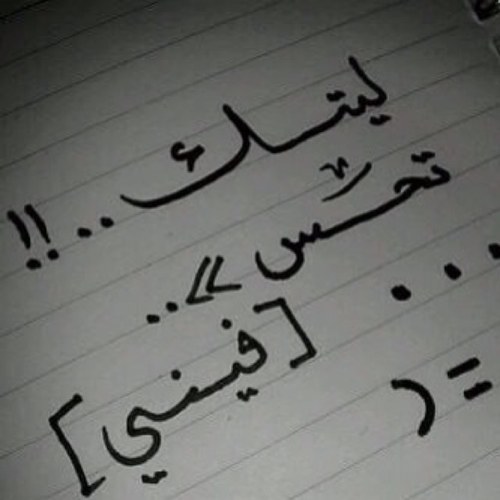 ليتك..!!
تحسّ »..
...
[فيني]
=(